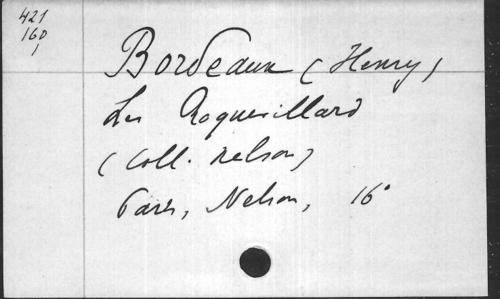 421
160
1
Bordeaux (Henry)
Les Roquevillard
(Coll. Nelson)
Paris, Nelson, 16°